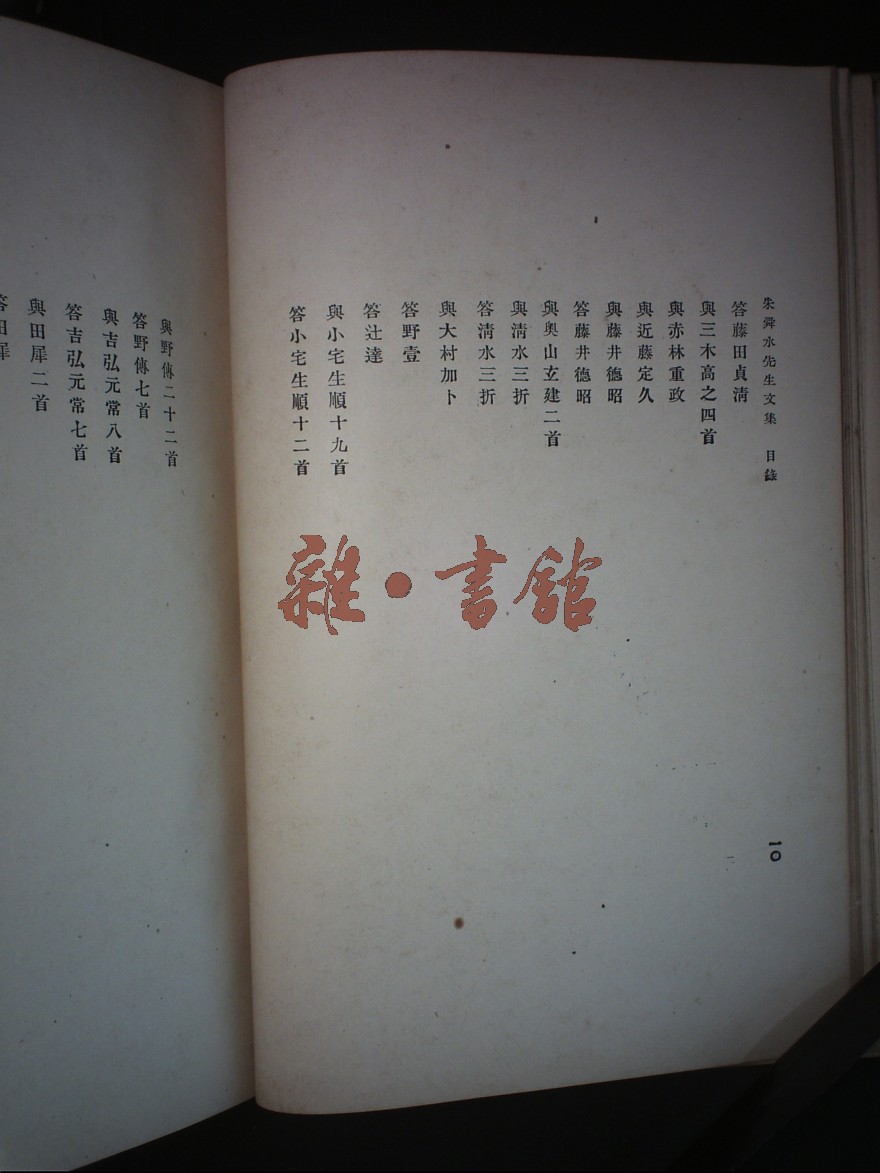 朱舜水先生文集　目錄
答藤田貞淸
與三木高之四首
與赤林重政
與近藤定久
與藤井德昭
答藤井德昭
與奧山玄建二首
與淸水三折
答淸水三折
與大村加卜
答野壹
答辻達
與小宅生順十九首
答小宅生順十二首
一〇
雜·書館
與野傳二十二首
答野傳七首
與吉弘元常八首
答吉弘元常七首
與田犀二首
答田犀